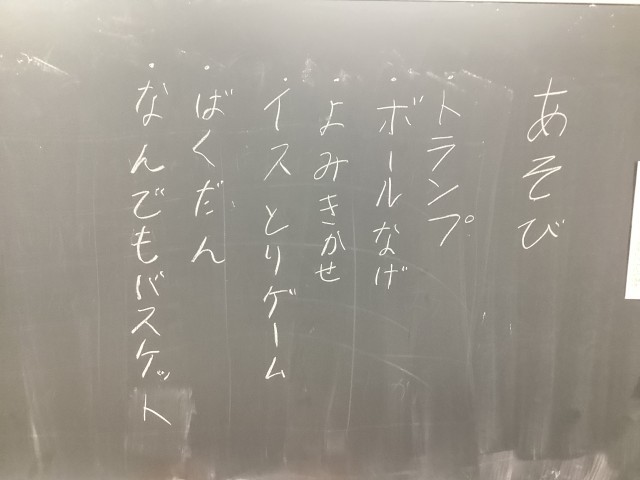 あそび
・トランプ
・ボールなげ
・よみきかせ
・イスとりゲーム
・ばくだん
・なんでもバスケット